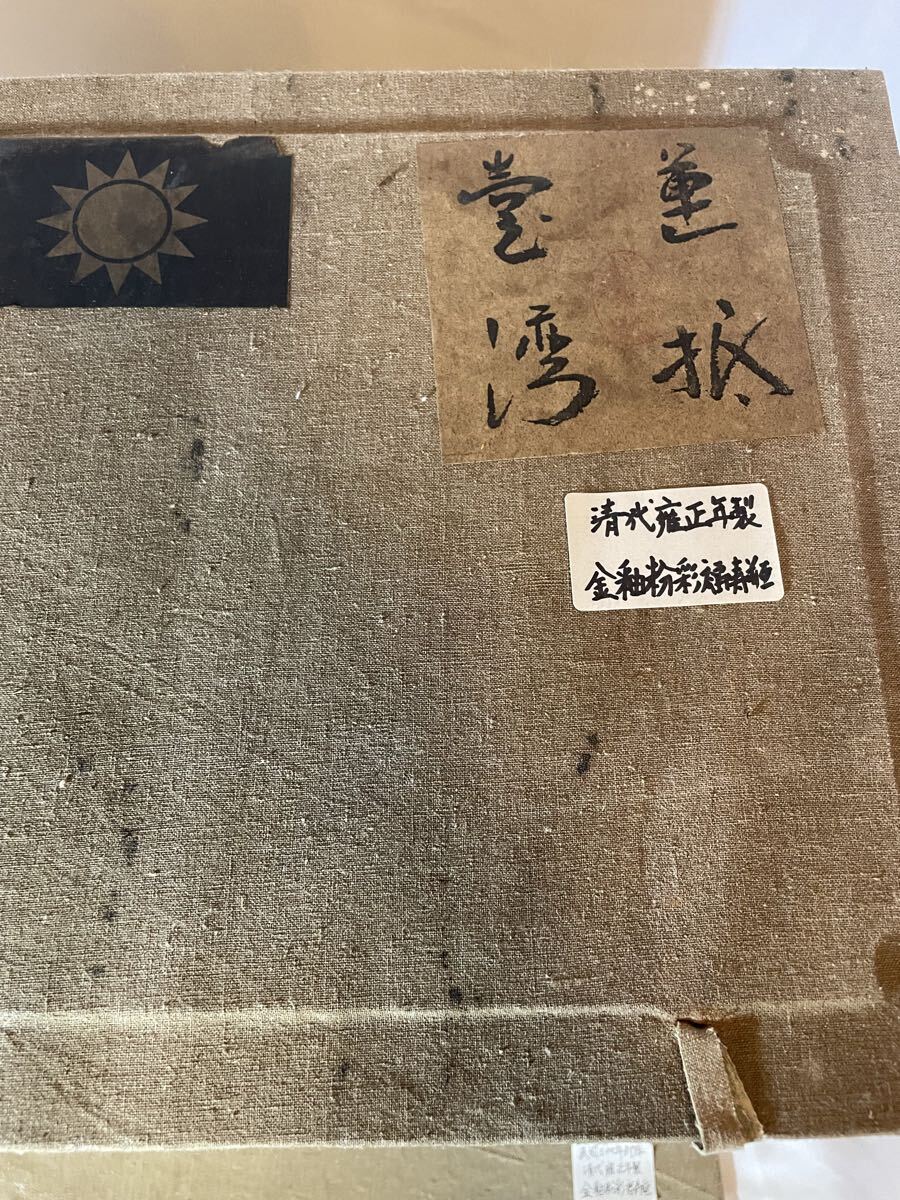 運抵
臺湾
清代雍正年製
金釉粉彩福壽瓶
清代雍正年製